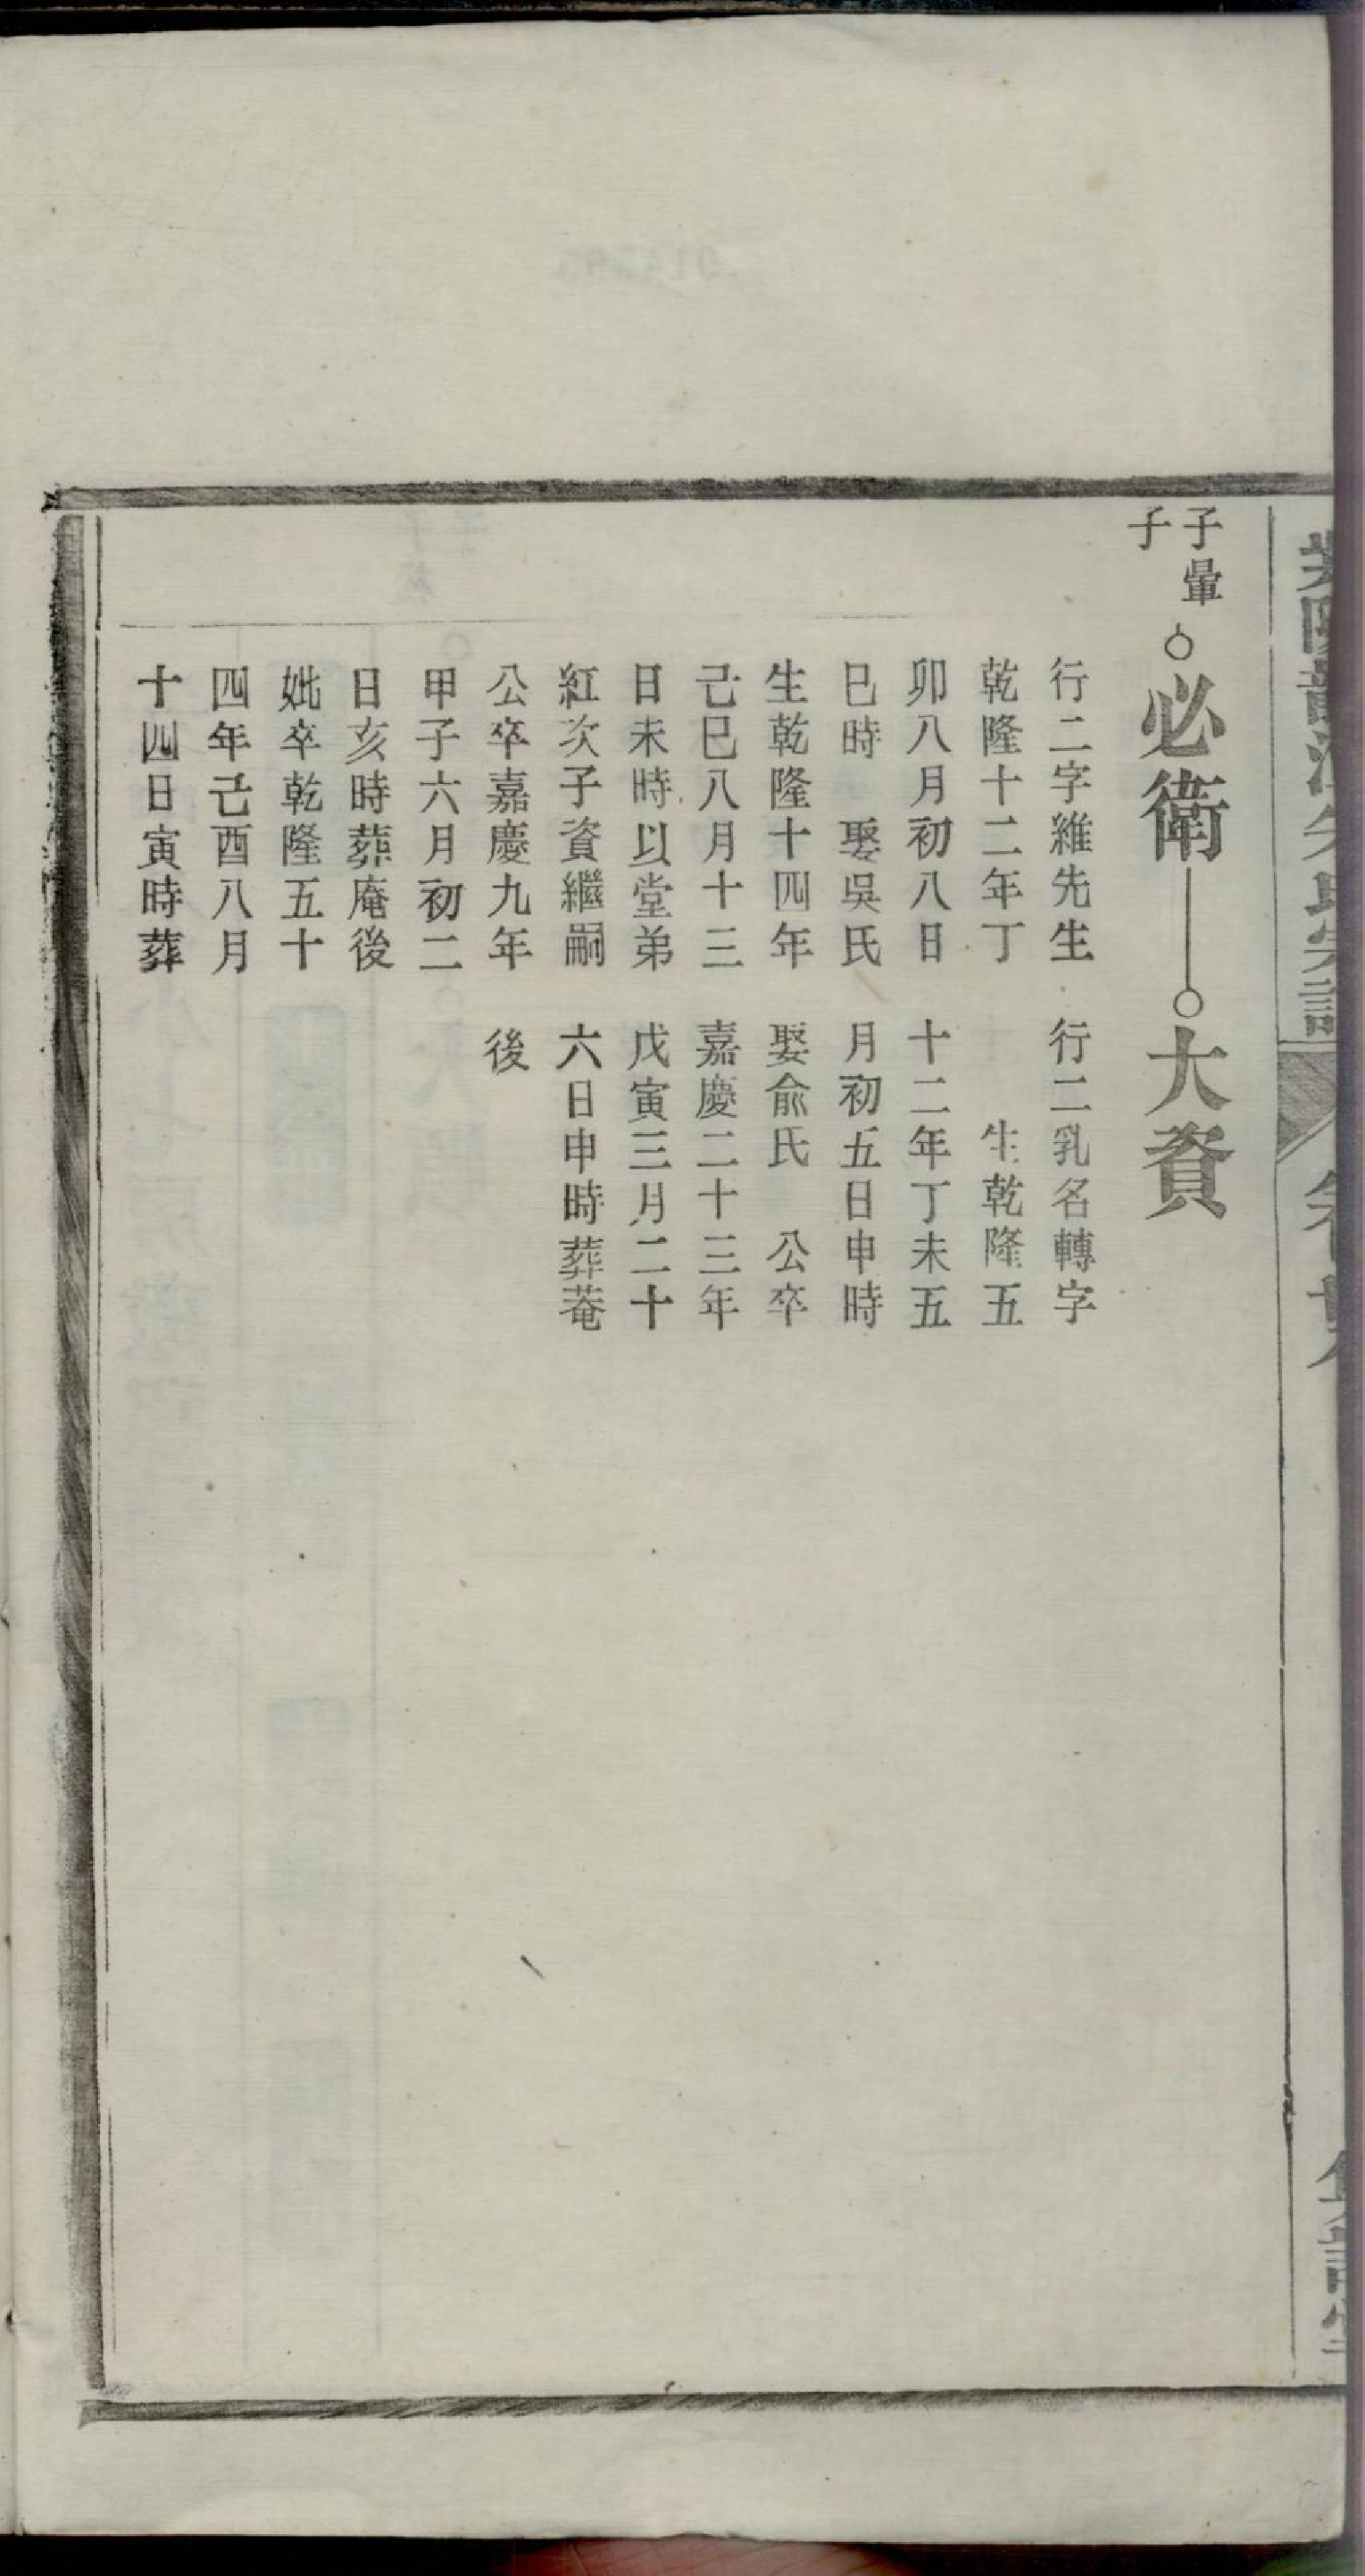 子暈
子
必衛
大資
行二字維先生
乾隆十二年丁
卯八月初八日
巳時 娶吳氏
生乾隆十四年
己巳八月十三
日未時以堂弟
紅次子資繼嗣
公卒嘉慶九年
甲子六月初二
日亥時葬庵後
妣卒乾隆五十
四年己酉八月
十四日寅時葬
行二乳名轉字
生乾隆五
十二年丁未五
月初五日申時
娶俞氏 公卒
嘉慶二十三年
戊寅三月二十
六日申時葬菴
後